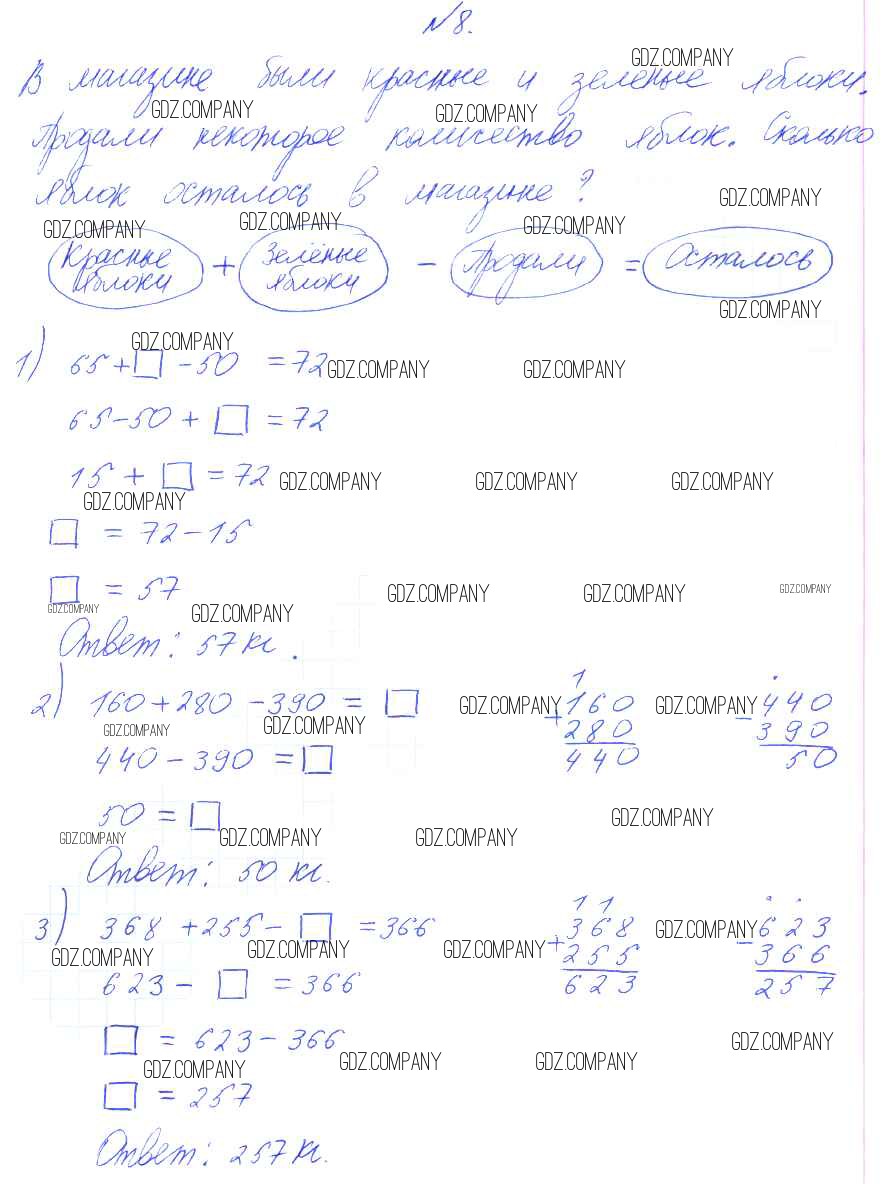 №8.
В магазине были красные и зеленые яблоки.
Продали некоторое количество яблок. Сколько
яблок осталось в магазине?
Красные яблоки + Зелёные яблоки - Продали = Осталось
1) 65 + □ - 50 = 72
65 - 50 + □ = 72
15 + □ = 72
□ = 72 - 15
□ = 57
Ответ: 57 кг.
2) 160 + 280 - 390 = □
440 - 390 = □
50 = □
Ответ: 50 кг.
1
+160
280
440
-440
390
50
3) 368 + 255 - □ = 366
623 - □ = 366
□ = 623 - 366
□ = 257
Ответ: 257 кг.
1 1
+368
255
623
-623
366
257
GDZ.COMPANY